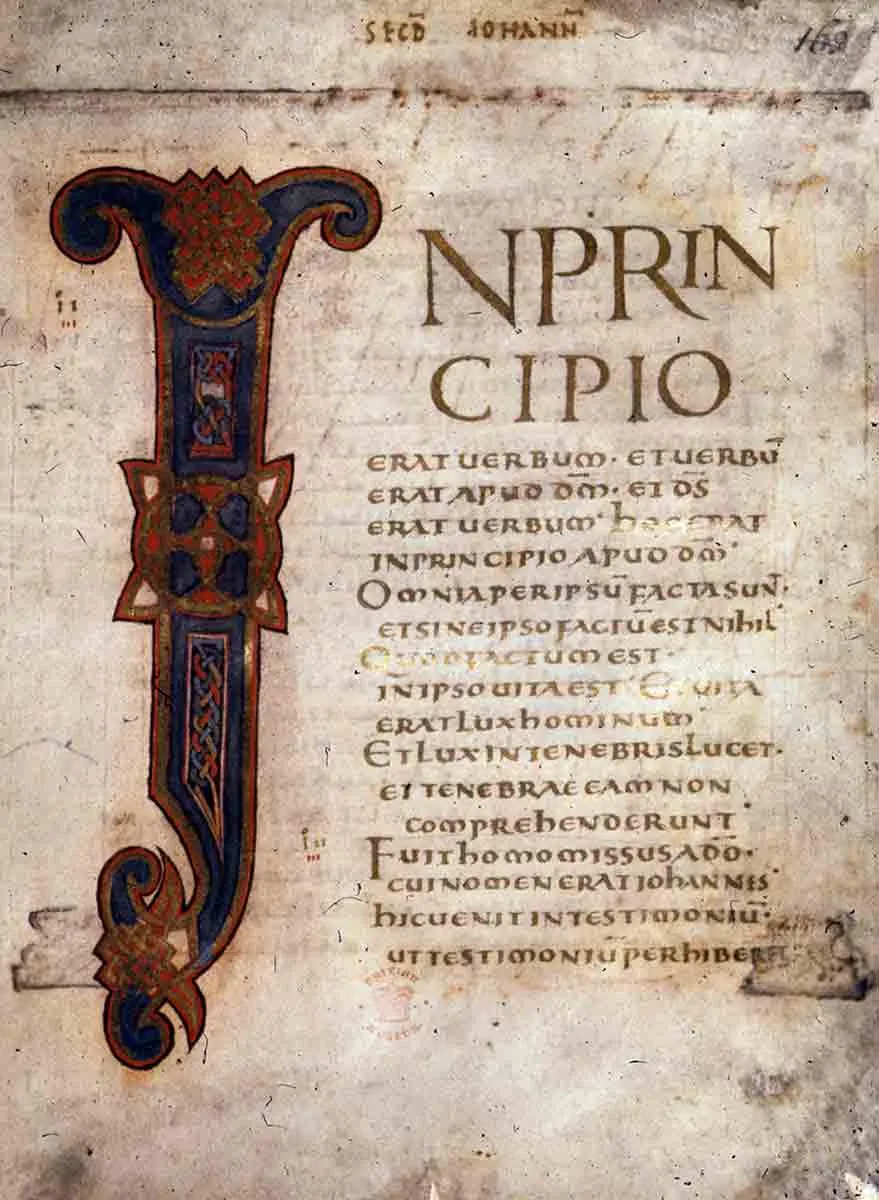 SECD̄ IOHANN̄
169
INPRIN
CIPIO
ERAT UERBUM · ET UERBŪ
ERAT APUD DM̄ · ET DS̄
ERAT UERBUM · hOC ERAT
INPRINCIPIO APUD DM̄ ·
OMNIA PER IPSŪ FACTA SUN̄ ·
ET SINE IPSO FACTŪ EST NIhIL
QUOD FACTUM EST ·
IN IPSO UITA EST · ET UITA
ERAT LUX hOMINUM ·
ET LUX IN TENEBRIS LUCET ·
ET TENEBRAE EAM NON
COMPREhENDERUNT ·
FUIT hOMO MISSUS A DŌ ·
CUI NOMEN ERAT IOhANNES ·
hIC UENIT IN TESTIMONIŪ ·
UT TESTIMONIŪ PERhIBERET